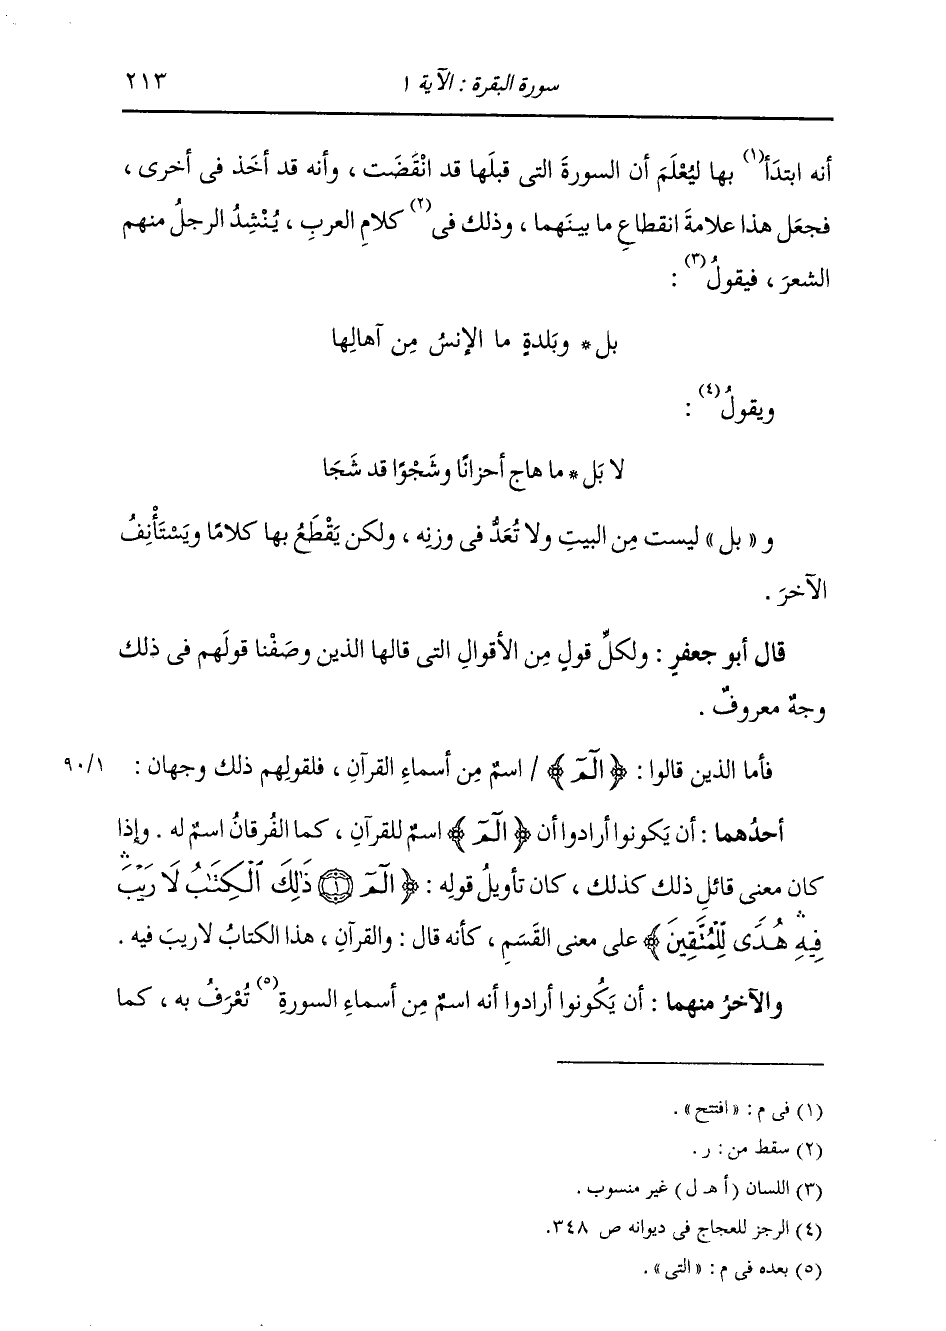 سورة البقرة : الآية ١ ٢١٣
أنه ابتدَأ(١) بها ليُعْلَمَ أن السورةَ التى قبلَها قد انْقَضَت ، وأنه قد أخَذ فى أخرى ،
فجعَل هذا علامةَ انقطاعِ ما بينَهما ، وذلك فى(٢) كلامِ العربِ ، يُنْشِدُ الرجلُ منهم
الشعرَ ، فيقولُ(٣) :
بل * وبَلدةٍ ما الإنسُ مِن آهالِها
ويقولُ(٤) :
لا بَل * ما هاج أحزانًا وشَجْوًا قد شَجَا
و « بل » ليست مِن البيتِ ولا تُعَدُّ فى وزنِه ، ولكن يَقْطَعُ بها كلامًا ويَسْتَأْنِفُ
الآخرَ .
قال أبو جعفرٍ : ولكلِّ قولٍ مِن الأقوالِ التى قالها الذين وصَفْنا قولَهم فى ذلك
وجهٌ معروفٌ .
فأما الذين قالوا : ﴿ الٓمٓ ﴾ / اسمٌ مِن أسماءِ القرآنِ ، فلقولِهم ذلك وجهان : ٩٠/١
أحدُهما : أن يَكونوا أرادوا أن ﴿ الٓمٓ ﴾ اسمٌ للقرآنِ ، كما الفُرقانُ اسمٌ له . وإذا
كان معنى قائلِ ذلك كذلك ، كان تأويلُ قولِه : ﴿ الٓمٓ ۝١ ذَٰلِكَ ٱلْكِتَٰبُ لَا رَيْبَۛ
فِيهِۛ هُدًى لِّلْمُتَّقِينَ ﴾ على معنى القَسَمِ ، كأنه قال : والقرآنِ ، هذا الكتابُ لا ريبَ فيه .
والآخرُ منهما : أن يَكُونوا أرادوا أنه اسمٌ مِن أسماءِ السورةِ(٥) تُعْرَفُ به ، كما
(١) فى م : « افتتح » .
(٢) سقط من : ر .
(٣) اللسان (أ هـ ل) غير منسوب .
(٤) الرجز للعجاج فى ديوانه ص ٣٤٨.
(٥) بعده فى م : « التى » .